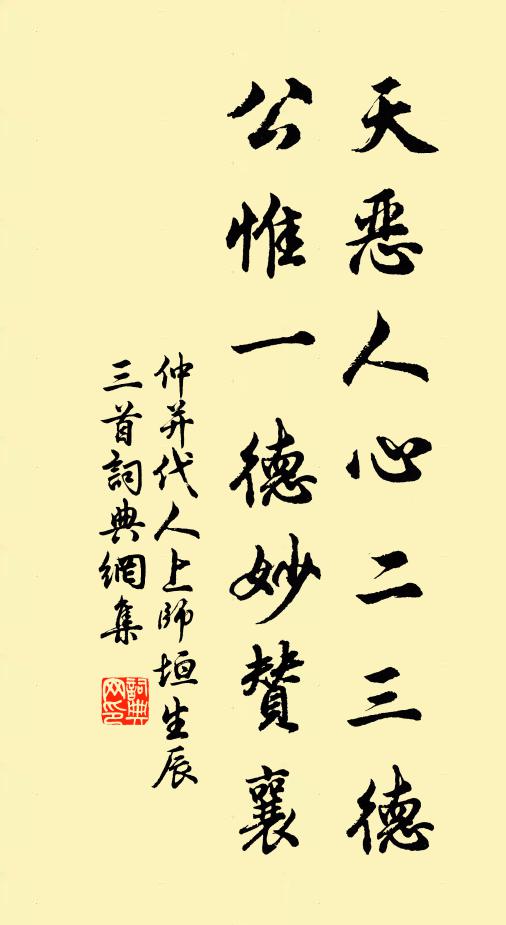 天惡人心二三德
公惟一德妙贊襄
仲并代人上師垣生辰
三首詞典網集
詞典
网印